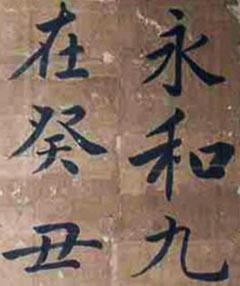 永和九
在癸丑